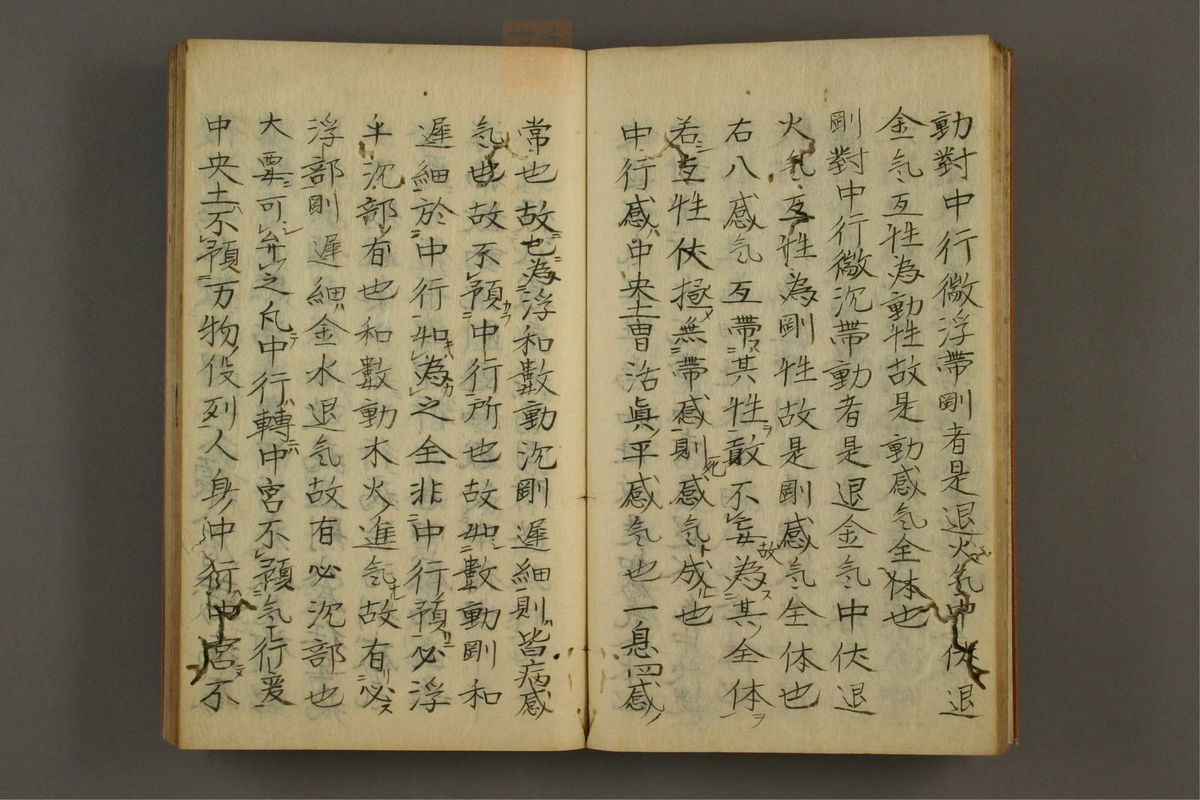 動對中行微浮帶剛者是退火氣中伏退
金氣互性為動性故是動感氣全体也
剛對中行微沉帶動者是退金气中伏退
火氣互性為剛性故是剛感气全体也
右八感气互帶其性敢不妄故為其全体
若互性伏極無帶感則死感气成也
中行感中央土曺活眞平感气也一息四感
常也故也為浮和數動沉剛遲細則皆病感
气也故不預中行所也故如數動剛和
遲細於中行如為之全非中行預必浮
半沉部有也和數動木火進气故有必
浮部剛遲細金水退气故有必沉部也
大要可弁之凡中行轉中宮不預气行爰
中央土不預万物役列人身中行中宮不